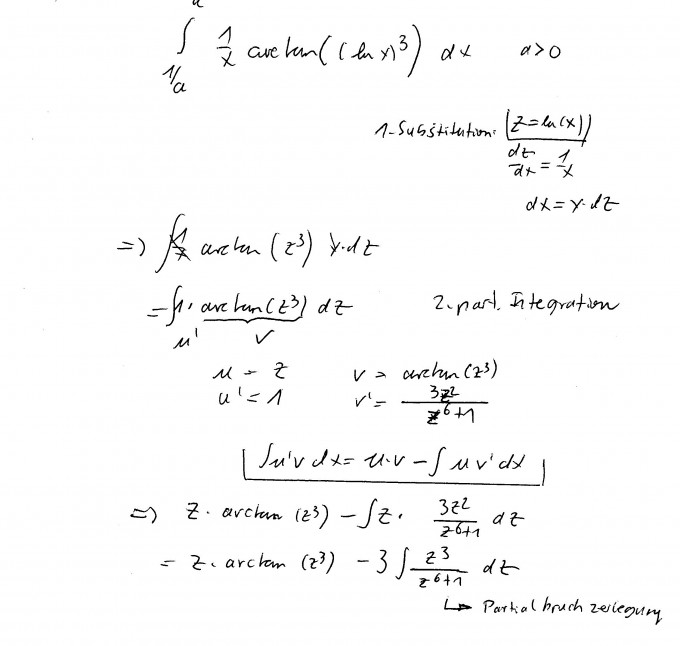 a
∫ 1/x arctan((ln x)³) dx a>0
1/a
1-Substitution: z=ln(x)
dz/dx = 1/x
dx = x·dz
=) ∫ 1/x arctan(z³) x·dz
= ∫1·arctan(z³) dz 2. part. Integration
u' v
u = z v = arctan(z³)
u' = 1 v' = 3z²/(z⁶+1)
∫u'v dx = u·v − ∫ u v' dx
=) z· arctan (z³) − ∫z· 3z²/(z⁶+1) dz
= z· arctan (z³) − 3 ∫ z³/(z⁶+1) dz
↳ Partialbruchzerlegung